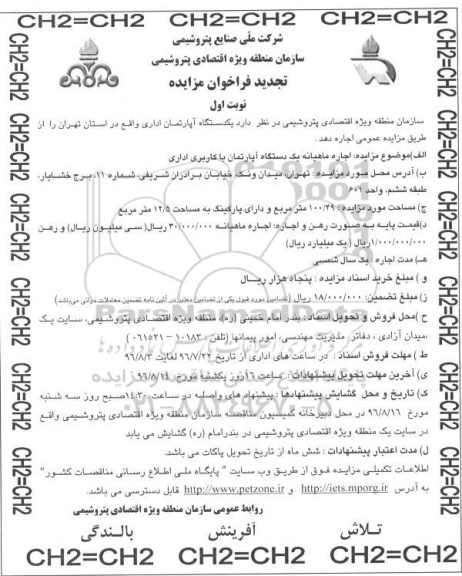 CH2=CH2 CH2=CH2 CH2=CH2 CH2=CH2
شرکت ملّی صنایع پتروشیمی
سازمان منطقه ویژه اقتصادی پتروشیمی
تجدید فراخوان مزایده
نوبت اول
سازمان منطقه ویژه اقتصادی پتروشیمی در نظر دارد یکدستگاه آپارتمان اداری واقع در استان تهران را از
طریق مزایده عمومی اجاره دهد .
الف)موضوع مزایده: اجاره ماهیانه یک دستگاه آپارتمان با کاربری اداری
ب) آدرس محل مورد مزایده : تهران، میدان ونک، خیابان برادران شریفی، شماره ۱۱، برج خشایار،
طبقه ششم، واحد ۶۰۱
ج) مساحت مورد مزایده : ۱۰۰/۴۹ متر مربع و دارای پارکینگ به مساحت ۱۲/۵ متر مربع
د)قیمت پایه به صورت رهن و اجاره: اجاره ماهیانه ۳۰/۰۰۰/۰۰۰ ریال( سی میلیون ریال) و رهن
۱/۰۰۰/۰۰۰/۰۰۰ریال ( یک میلیارد ریال)
هـ) مدت اجاره : یک سال شمسی
و ) مبلغ خرید اسناد مزایده : پنجاه هزار ریال
ز) مبلغ تضمین: ۱۸/۰۰۰/۰۰۰ ریال (تضامین مورد قبول یکی از تضامین معتبر در آئین نامه تضمین معاملات دولتی می‌باشد)
ح )محل فروش و تحویل اسناد : بندر امام خمینی (ره) منطقه ویژه اقتصادی پتروشیمی، سایت یک
،میدان آزادی ، دفاتر مدیریت مهندسی، امور پیمانها (تلفن : ۱۰۱۸۳ - ۰۶۱۵۲۱ )
ط ) مهلت فروش اسناد : در ساعت های اداری از تاریخ ۹۶/۷/۲۲ لغایت ۹۶/۸/۳
ی) آخرین مهلت تحویل پیشنهادات : ساعت ۱۶روز یکشنبه مورخ ۹۶/۸/۱۴
ک) تاریخ و محل گشایش پیشنهادها : پیشنهادهای واصله در ساعت ۱۴:۳۰صبح روز سه شنبه
مورخ ۹۶/۸/۱۶ در محل دبیرخانه کمیسیون مناقصه سازمان منطقه ویژه اقتصادی پتروشیمی واقع
در سایت یک منطقه ویژه اقتصادی پتروشیمی در بندرامام (ره) گشایش می یابد
ل) مدت اعتبار پیشنهادات : شش ماه از تاریخ تحویل پاکات می باشد.
اطلاعات تکمیلی مزایده فوق از طریق وب سایت " پایگاه ملی اطلاع رسانی مناقصات کشور"
به آدرس http://iets.mporg.ir و http://www.petzone.ir قابل دسترسی می باشد.
روابط عمومی سازمان منطقه ویژه اقتصادی پتروشیمی
تلاش آفرینش بالندگی
CH2=CH2 CH2=CH2 CH2=CH2 CH2=CH2